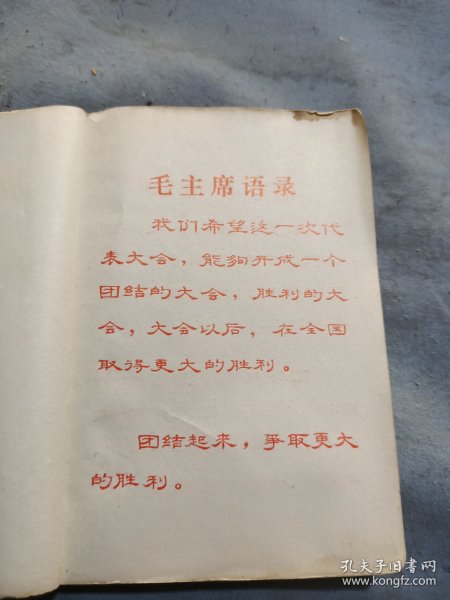 毛主席语录
我们希望这一次代
表大会，能够开成一个
团结的大会，胜利的大
会，大会以后，在全国
取得更大的胜利。
团结起来，争取更大
的胜利。
孔夫子旧书网
www.kongfz.com